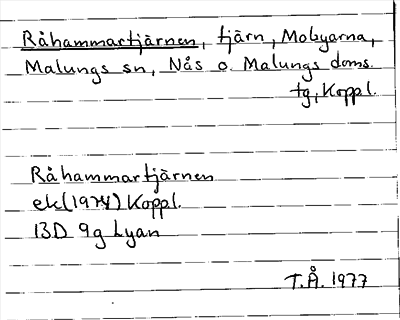 Råhammartjärnen, tjärn, Mobyarna,
Malungs sn, Nås o. Malungs doms.
tg, Koppl.
Råhammartjärnen
ek (1974) Koppl.
13D 9g Lyan
T.Å. 1977